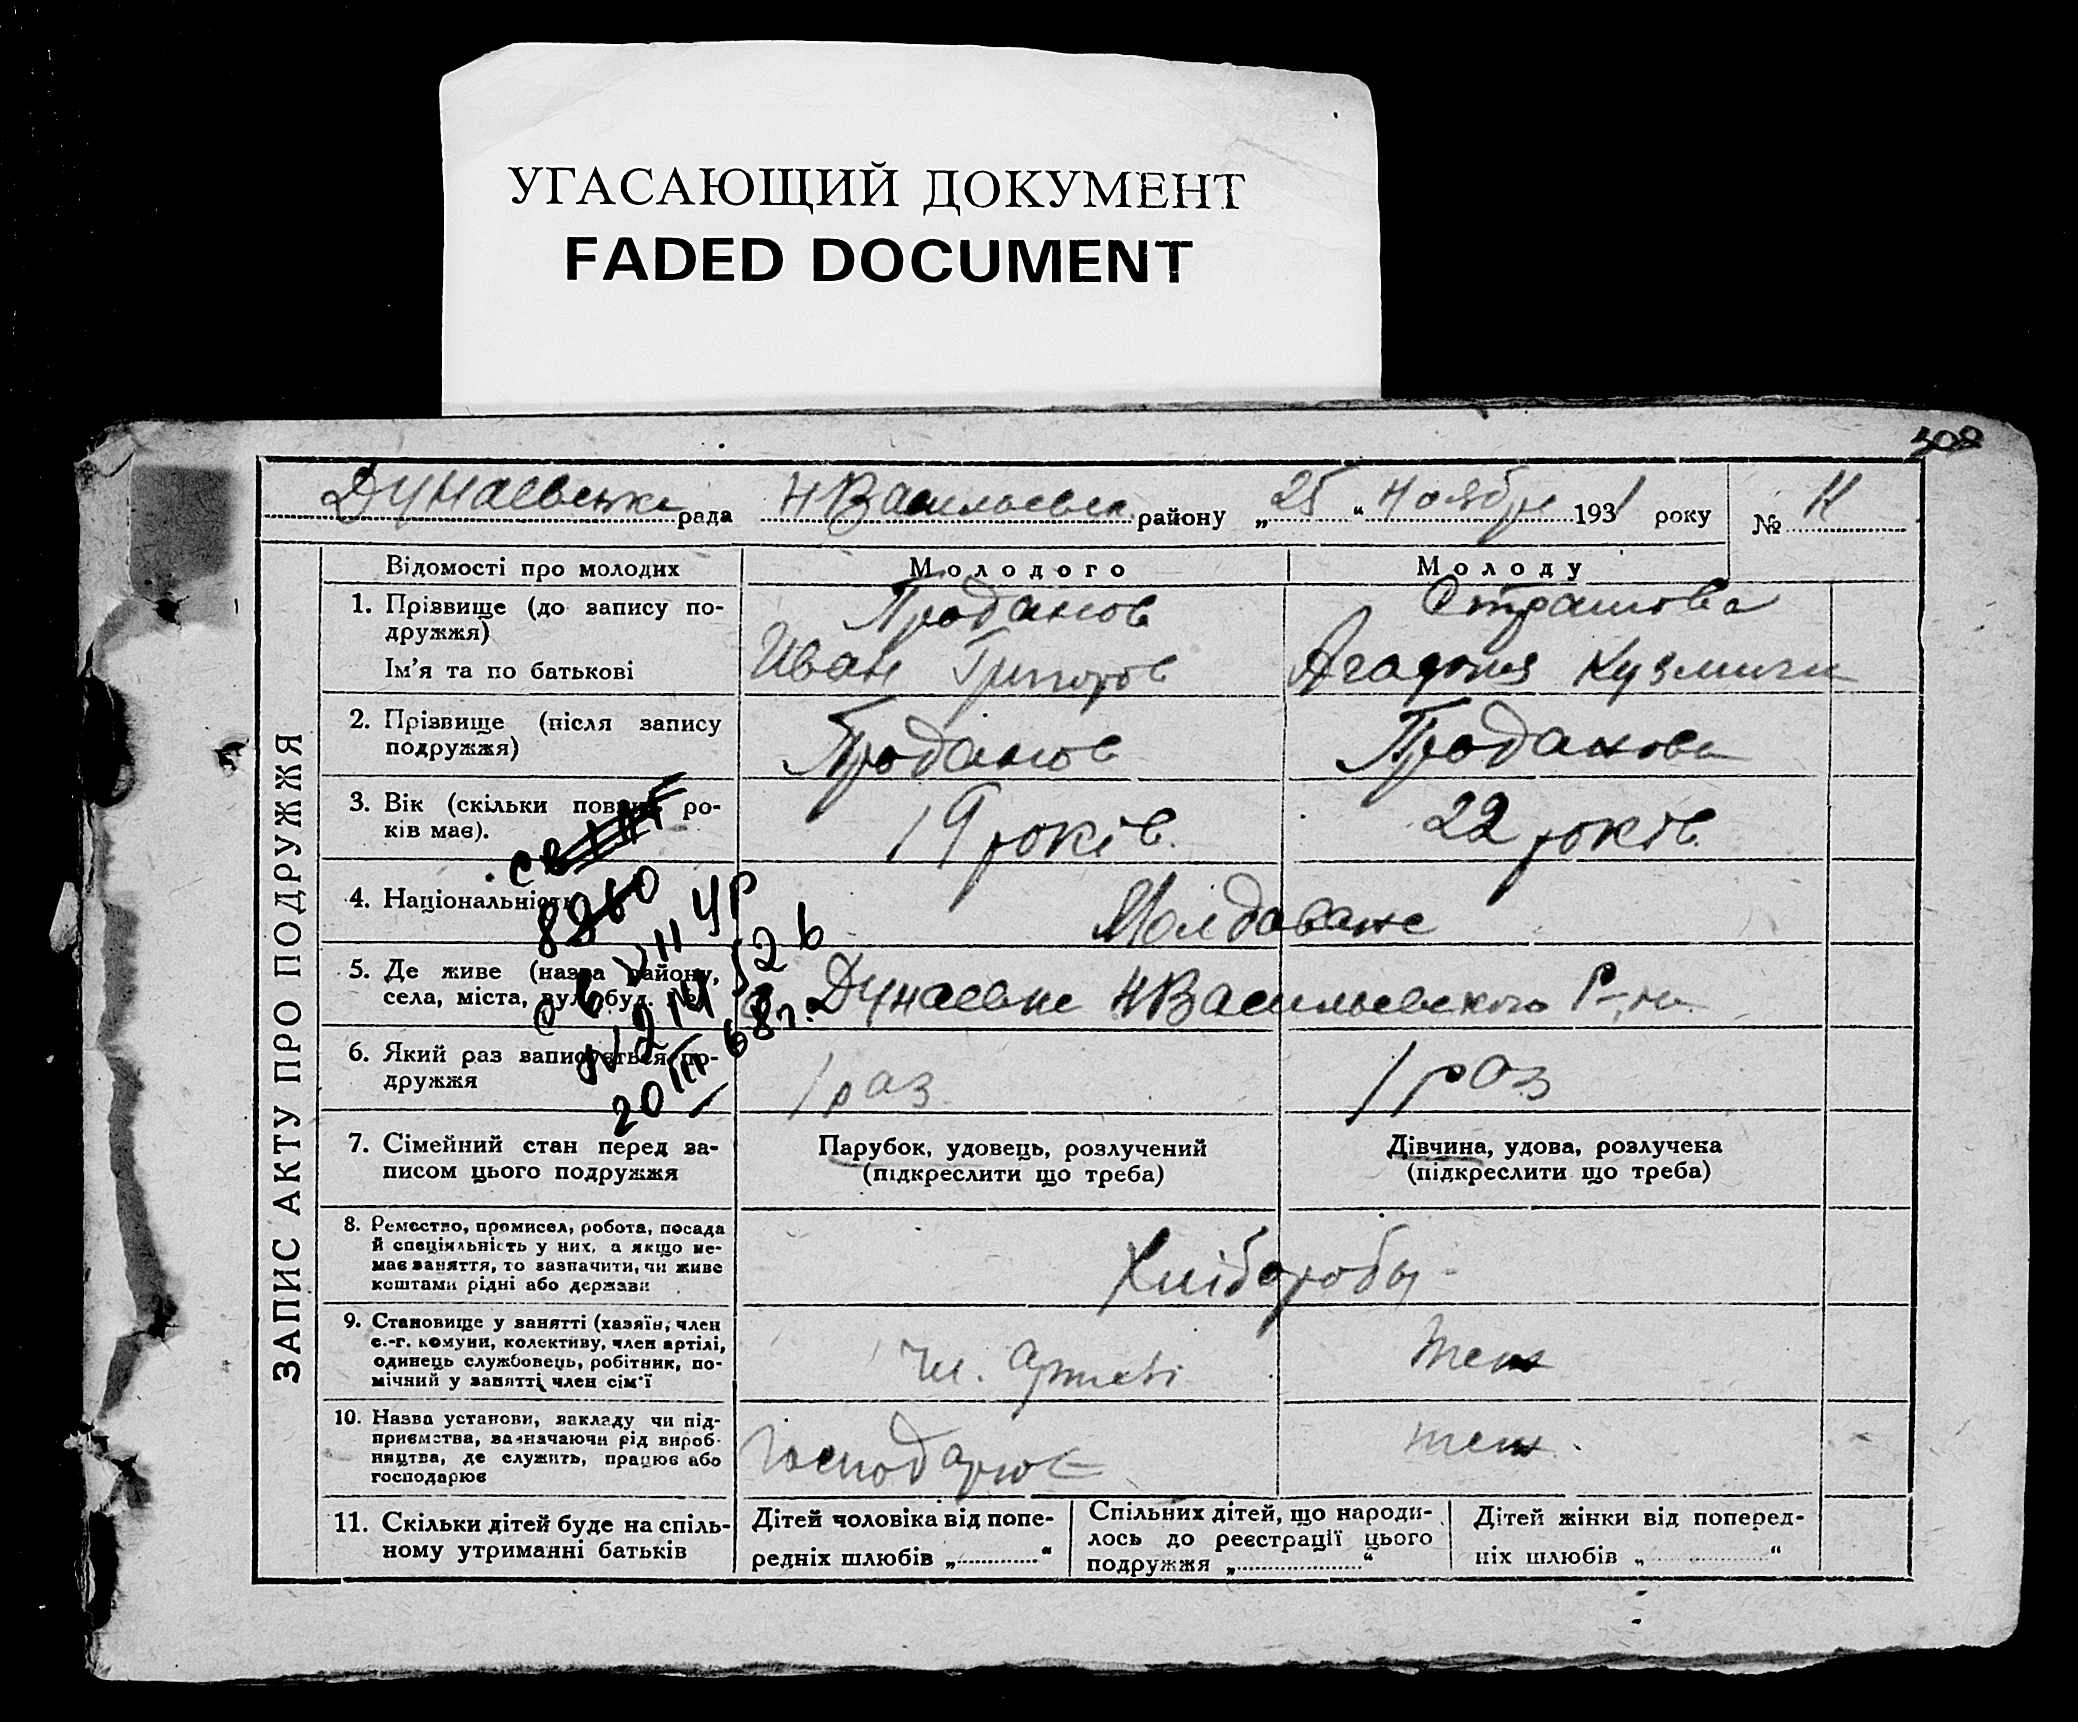 УГАСАЮЩИЙ ДОКУМЕНТ
FADED DOCUMENT
308
Дунаевська рада НВасильевск району „25“ Ноября 1931 року № 11
ЗАПИС АКТУ ПРО ПОДРУЖЖЯ
Відомості про молодих Молодого Молоду
1. Прізвище (до запису по-
дружжя)
Проданов Страшова
Ім'я та по батькові Иван Григоров Агафия Кузмични
2. Прізвище (після запису
подружжя)
Проданов Проданова
3. Вік (скільки повних ро-
ків має).
19 років. 22 років.
4. Національність Молдаване
5. Де живе (назва району,
села, міста, вул. буд. №)
Дунаевке НВасильевского Р-на
6. Який раз записується по-
дружжя
1 раз 1 раз
7. Сімейний стан перед за-
писом цього подружжя
Парубок, удовець, розлучений
(підкреслити що треба)
Дівчина, удова, розлучена
(підкреслити що треба)
8. Ремество, промисел, робота, посада
й спеціяльність у них, а якщо не-
має заняття, то зазначити, чи живе
коштами рідні або держави
Хлібороби
9. Становище у занятті (хазяїн, член
с.-г. комуни, колективу, член артілі,
одинець службовець, робітник, по-
мічний у занятті член сім'ї
чл. Артелі теж
10. Назва установи, закладу чи під-
приємства, зазначаючи рід вироб-
ництва, де служить, працює або
господарює
Господарює теж
11. Скільки дітей буде на спіль-
ному утриманні батьків
Дітей чоловіка від попе-
редніх шлюбів „ “
Спільних дітей, що народи-
лось до реєстрації цього
подружжя „ “
Дітей жінки від поперед-
ніх шлюбів „ “
8860
20 III 68г.